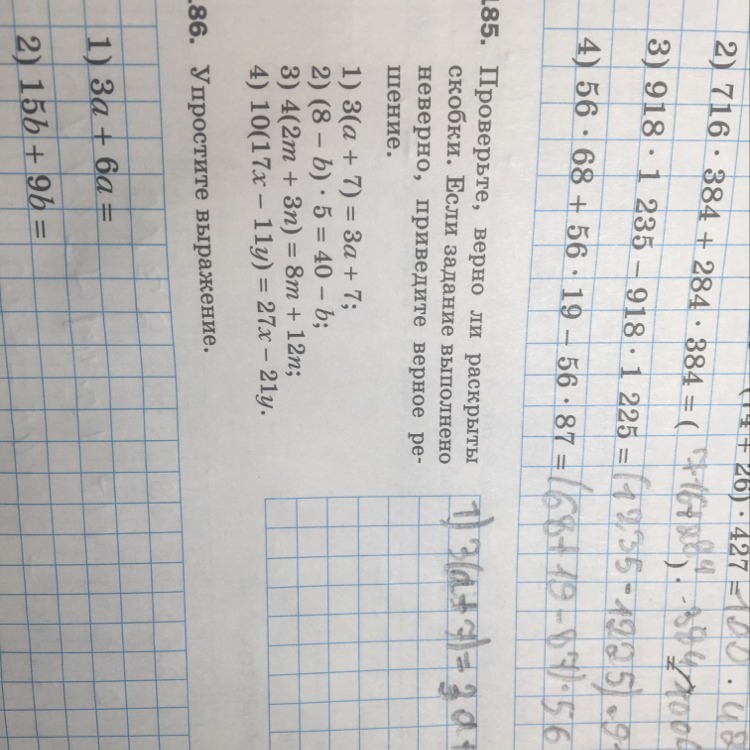 4 + 26) · 427 = 100 · 48
2) 716 · 384 + 284 · 384 = (716+284) · 384 =
3) 918 · 1 235 − 918 · 1 225 = (1235-1225) · 9
4) 56 · 68 + 56 · 19 − 56 · 87 = (68+19-87) · 56
185. Проверьте, верно ли раскрыты
скобки. Если задание выполнено
неверно, приведите верное ре-
шение.
1) 3(a + 7) = 3a + 7;
2) (8 − b) · 5 = 40 − b;
3) 4(2m + 3n) = 8m + 12n;
4) 10(17x − 11y) = 27x − 21y.
1) 3(a + 7) = 3a+
.86. Упростите выражение.
1) 3a + 6a =
2) 15b + 9b =